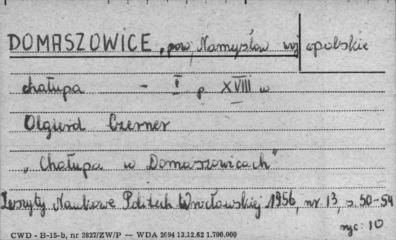 DOMASZOWICE, pow. Namysłów woj opolskie
chałupa - I p XVIII w
Olgierd Czerner
"Chałupa w Domaszowicach"
Zeszyty Naukowe Politech Wrocławskiej 1956, nr. 13, s. 50-54
ryc: 10
CWD - B-15-b, nr 2827/ZW/P — WDA 2094 13.12.62 1.700.000